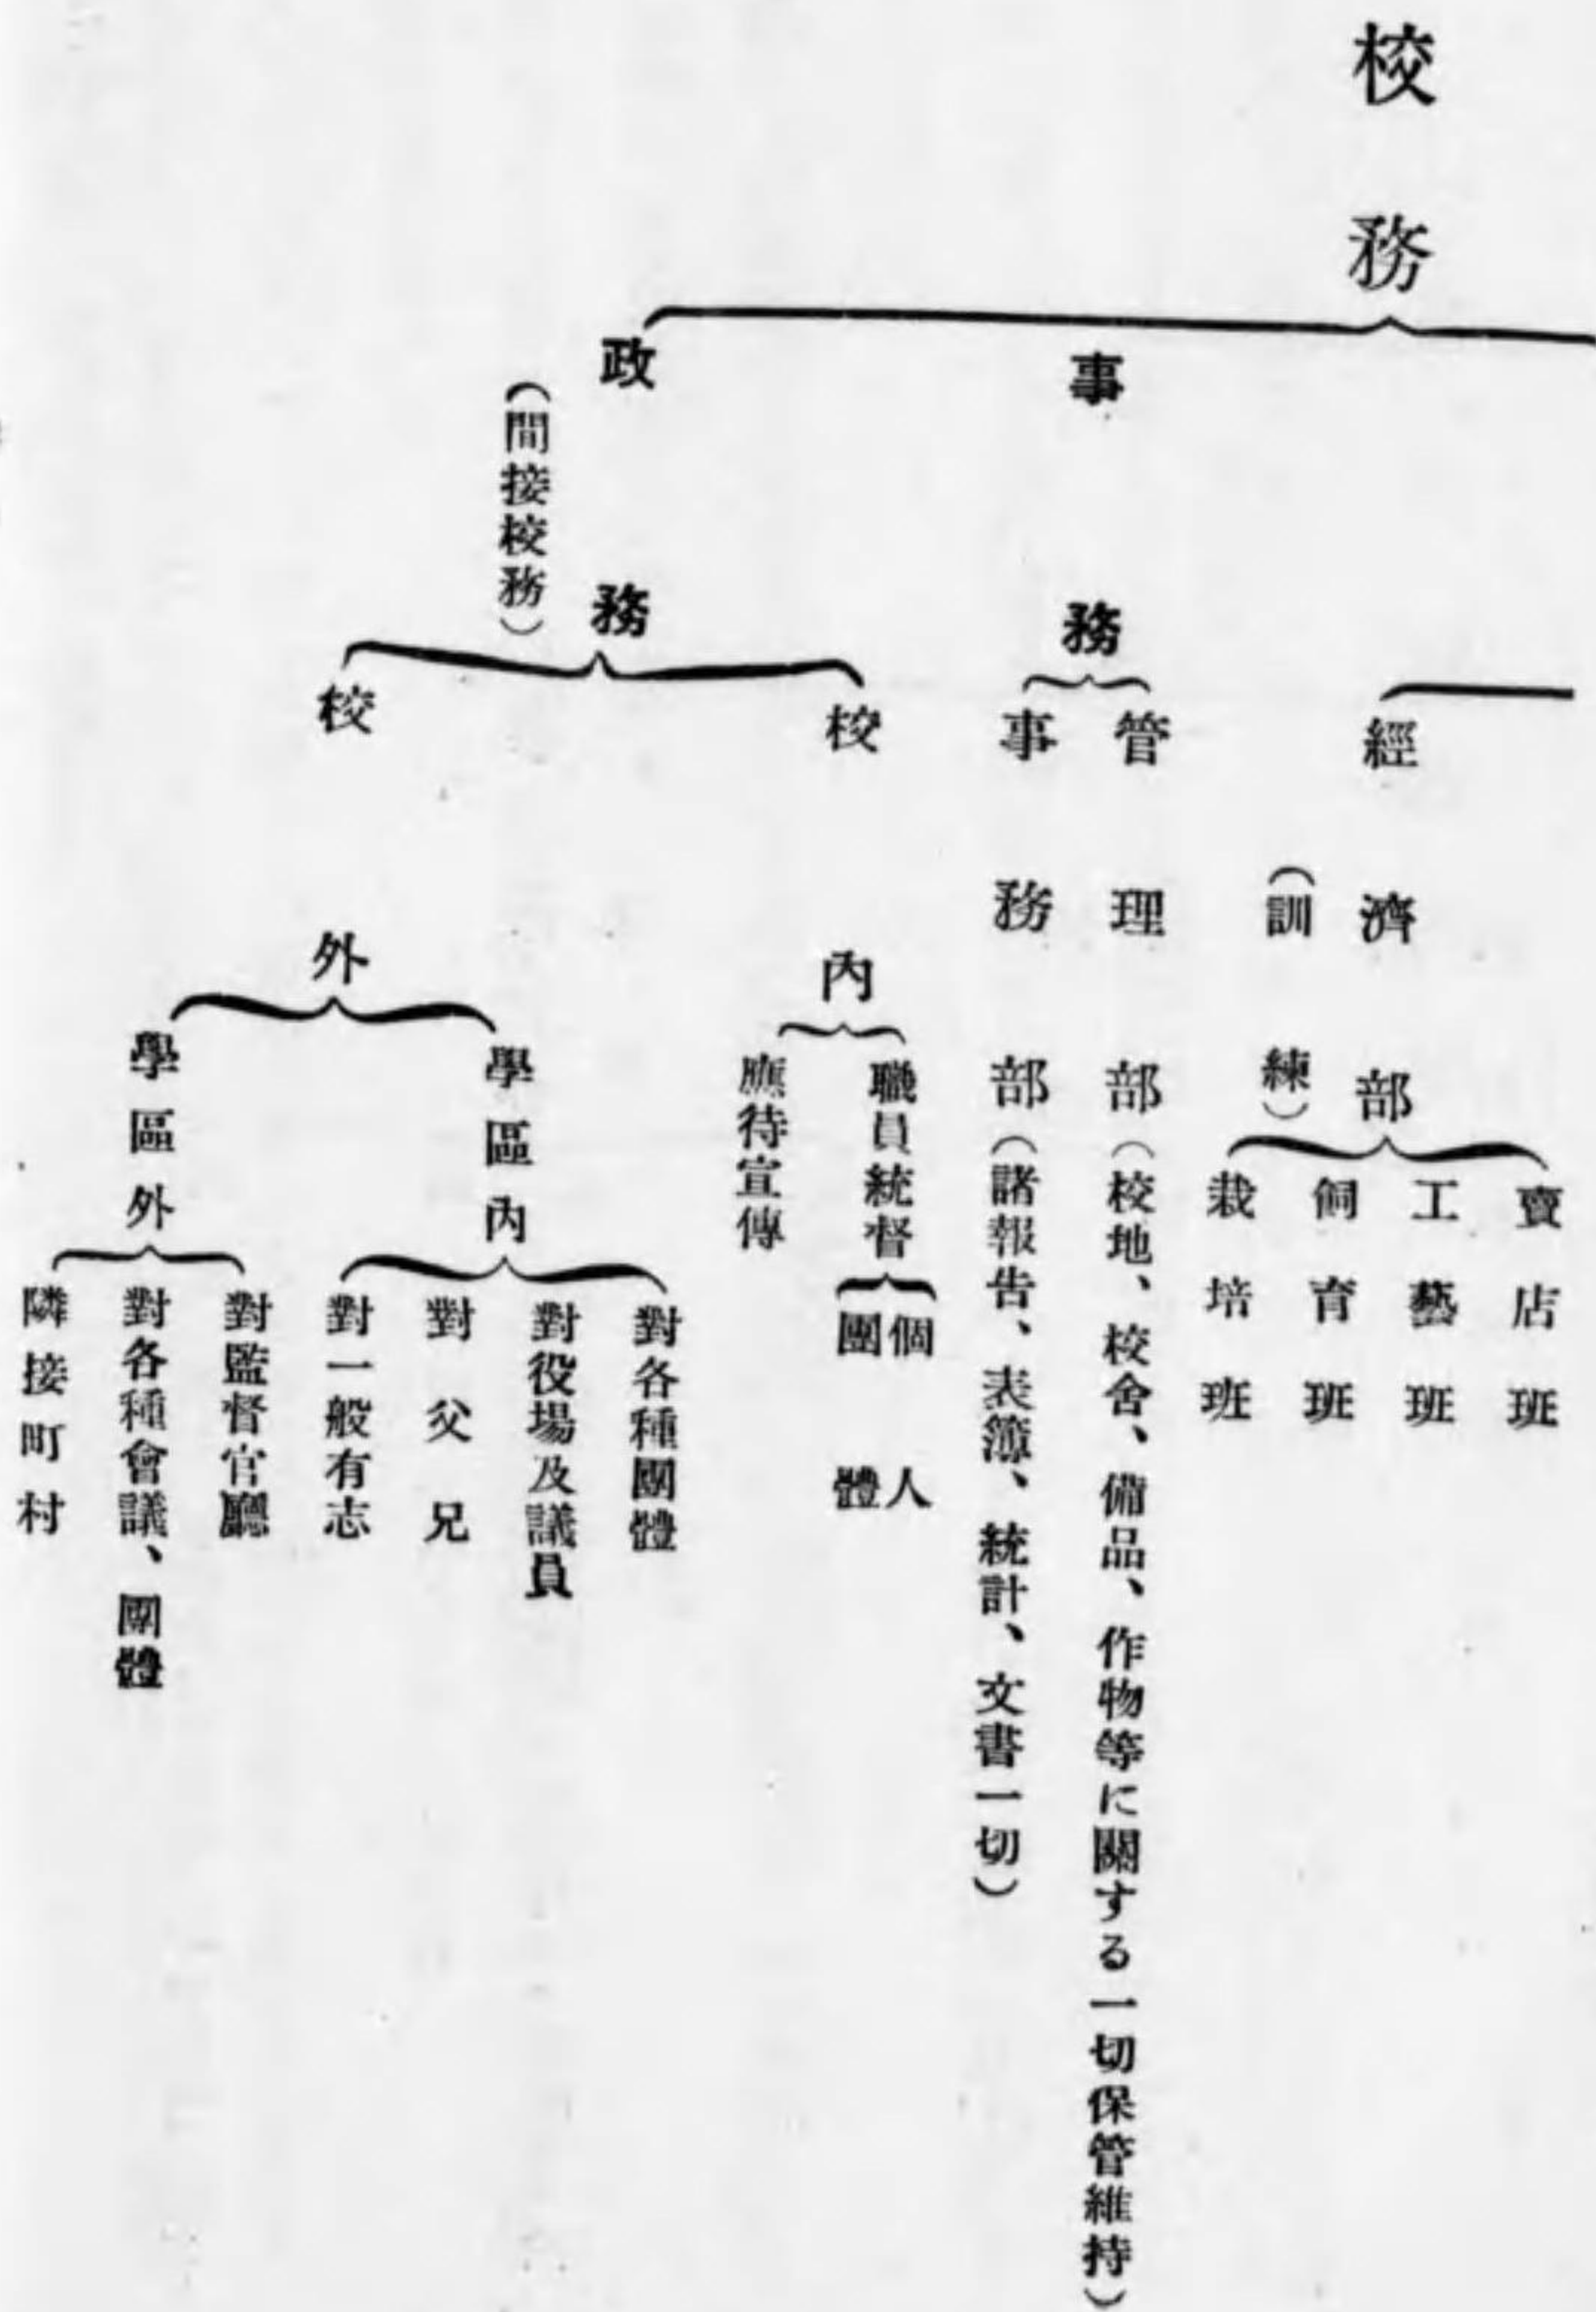 校務
經濟部
(訓練)
賣店班
工藝班
飼育班
栽培班
事務
管理部(校地、校舍、備品、作物等に關する一切保管維持)
事務部(諸報告、表簿、統計、文書一切)
政務
(間接校務)
校內
職員統督
個人
團體
應待宣傳
校外
學區內
對各種團體
對役場及議員
對父兄
對一般有志
學區外
對監督官廳
對各種會議、團體
隣接町村